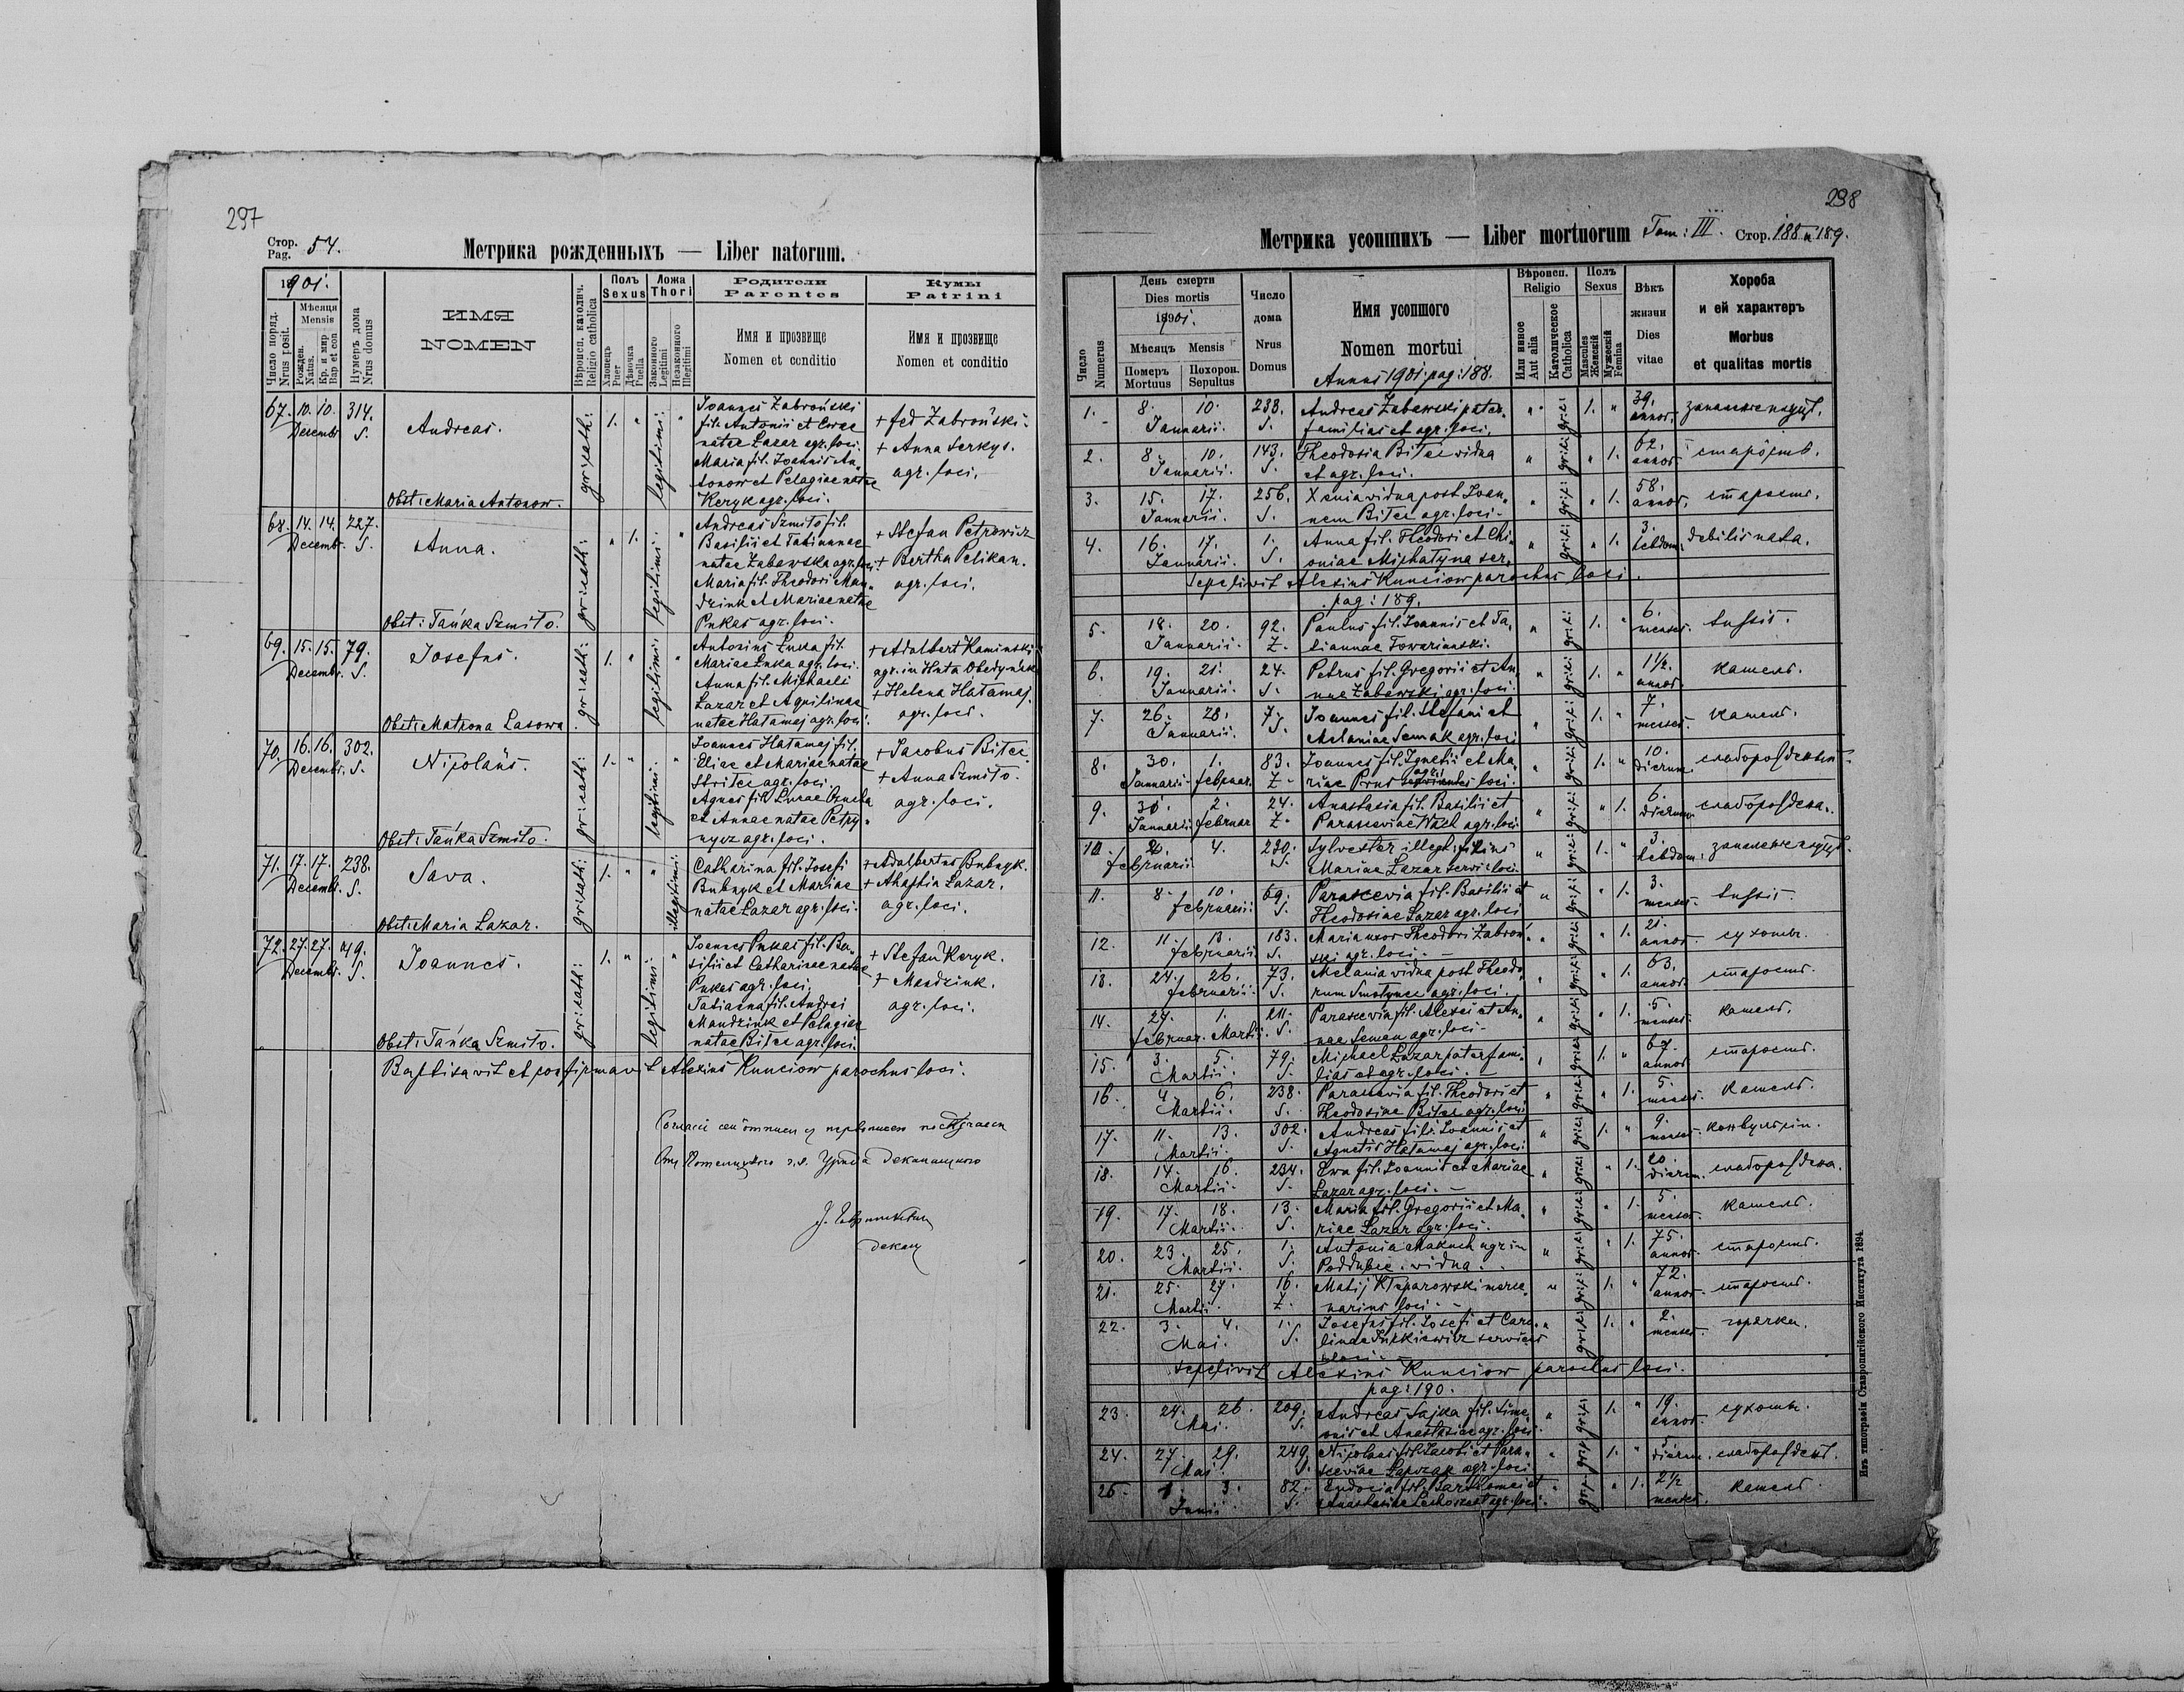 297
Стор.
Pag. 54.
Метрика рожденныхъ — Liber natorum.
1901.
Число поряд.
Nrus posit.
Мѣсяця
Mensis
Рожден.
Natus.
Кр. и мир
Bap et con
Нумеръ дома
Nrus domus
ИМЯ
NOMEN
Вѣроисп. католич.
Religio catholica
Полъ
Sexus
Хлопецъ
Puer
Дѣвочка
Puella
Ложа
Thori
Законного
Legitimi
Незаконного
Illegitimi
Родители
Parentes
Имя и прозвище
Nomen et conditio
Кумы
Patrini
Имя и прозвище
Nomen et conditio
67. 10. 10. 314.
Decembr. S.
Andreas.
Obst: Maria Antonow.
gr: cath:
1. "
legitimi: "
Joannes Zabroński
fil. Antonii et Evae
natae Lazar agr. loci.
Maria fil. Joannis An-
tonow et Pelagiae natae
Keryk agr. loci.
+ Fed Zabroński.
+ Anna Serkys.
agr. loci.
68. 14. 14. 227.
Decembr. S.
Anna.
Obst: Tańka Szmiło.
gr: cath:
" 1.
legitimi: "
Andreas Szmiło fil.
Basilii et Tatiannae
natae Zabawska agr. loci.
Maria fil. Theodori Man-
dziuk et Mariae natae
Pukas agr. loci.
+ Stefan Petrowicz
+ Bertha Pelikan.
agr. loci.
69. 15. 15. 79.
Decembr. S.
Josefus.
Obst: Matrona Lasowa.
gr: cath:
1. "
legitimi: "
Antonius Łuka fil.
Mariae Łuka agr. loci.
Anna fil. Michaeli
Lazar et Aquilinae
natae Hałamaj agr. loci.
+ Adalbert Kaminski
agr. in Huta Obedyńska
+ Helena Hałamaj.
agr. loci.
70. 16. 16. 302.
Decembr. S.
Nicolaus.
Obst: Tańka Szmiło.
gr: cath:
1. "
legitimi: "
Joannes Hałamaj fil.
Eliae et Mariae natae
agr. loci.
Agnes fil. Lucae
et Annae natae Petry-
nycz agr. loci.
+ Jacobus Bilec.
+ Anna Szmiło.
agr. loci.
71. 17. 17. 238.
Decembr. S.
Sava.
Obst: Maria Lazar.
gr: cath:
1. "
" illegitimi:
Catharina fil. Josefi
Bubnyk et Mariae
natae Lazar agr. loci.
+ Adalbertus Bubnyk.
+ Ahaftia Lazar.
agr. loci.
72. 27. 27. 49.
Decembr. S.
Joannes.
Obst: Tańka Szmiło.
gr: cath:
1. "
legitimi: "
Joannes Pukas fil. Ba-
silii et Catharinae natae
Pukas agr. loci.
Tatianna fil. Andrei
Mandziuk et Pelagiae
natae Bilec agr. loci.
+ Stefan Keryk.
+ Mandziuk.
agr. loci.
Baptisavit et confirmavit Alexius Kunciow parochus loci.
декан
298
Метрика усопшихъ — Liber mortuorum Tom: III. Стор. 188 и 189.
Число
Numerus
День смерти
Dies mortis
1901.
Мѣсяцъ Mensis
Померъ
Mortuus
Похорон.
Sepultus
Число
дома
Nrus
Domus
Имя усопшого
Nomen mortui
Annus 1901. pag: 188.
Вѣроисп.
Religio
Или инное
Aut alia
Католическое
Catholica
Полъ
Sexus
Mascules
Женскій
Мужескій
Femina
Вѣкъ
жизни
Dies
vitae
Хороба
и ей характеръ
Morbus
et qualitas mortis
1. 8. 10. Januarii. 238. S. Andreas Zabawski pater- " gr: c: 1. " 39. annor.
familias et agr. loci.
2. 8. 10. Januarii. 143. S. Theodosia Bilec vidua " gr: c: " 1. 62. annor. старôсть.
et agr. loci.
3. 15. 17. Januarii. 256. S. Xenia vidua post Joan- " gr: c: " 1. 58. annor. старость.
nem Bilec agr. loci.
4. 16. 17. Januarii. 1. S. Anna fil. Theodori et Chi- " gr: c: " 1. 3. hebdom. debilis nata.
oniae Michałyna ser.
Sepelivit Alexius Kunciow parochus loci.
pag: 189.
5. 18. 20. Januarii. 92. Z. Paulus fil. Joannis et Ta- " gr: c: 1. " 6. menses. tussis.
tiannae Towarianski.
6. 19. 21. Januarii. 24. S. Petrus fil. Gregorii et An- " gr: c: 1. " 1½ annor. кашель.
nae Zabawski agr. loci.
7. 26. 28. Januarii. 7. S. Joannes fil. Stefani et " gr: c: 1. " 7. menses. кашель.
Melaniae Semak agr. loci
8. 30. Januarii. 1. Februar. 83. Z. Joannes fil. Ignatii et Ma- " gr: c: 1. " 10. dierum.
riae Prus agr. loci.
9. 30. Januarii. 2. Februar. 24. Z. Anastasia fil. Basilii et " gr: c: " 1. 6. dierum.
Parasceviae Wach agr. loci.
10. 2. 4. Februarii. 230. S. Sylvester illeg. filius " gr: c: 1. " 3. hebdom.
Mariae Lazar servi loci.
11. 8. 10. Februarii. 69. S. Parascevia fil. Basilii et " gr: c: " 1. 3. menses. tussis.
Theodosiae Lazar agr. loci
12. 11. 13. Februarii. 183. S. Maria uxor Theodori Zabroń- " gr: c: " 1. 21. annor. сухоты.
ski agr. loci.
13. 24. 26. Februarii. 73. S. Melania vidua post Theodo- " gr: c: " 1. 63. annor. старость.
rum Smolynec agr. loci.
14. 27. Februar. 1. Martii. 211. S. Parascevia fil. Alexei et An- " gr: c: " 1. 5. menses. кашель.
nae Seman agr. loci.
15. 3. 5. Martii. 79. S. Michael Lazar paterfami- " gr: c: 1. " 67. annor. старость.
lias et agr. loci.
16. 4. 6. Martii. 238. S. Parascevia fil. Theodori et " gr: c: " 1. 5. menses. кашель.
Theodosiae Bilec agr. loci
17. 11. 13. Martii. 302. S. Andreas fil. Joannis et " gr: c: 1. " 9. menses. конвульсіи.
Agnetis Hałamaj agr. loci.
18. 14. 16. Martii. 234. S. Ewa fil. Joannis et Mariae " gr: c: " 1. 20. dierum.
Lazar agr. loci.
19. 17. 18. Martii. 13. S. Maria fil. Gregorii et Ma- " gr: c: " 1. 5. menses. кашель.
riae Lazar agr. loci.
20. 23. 25. Martii. 1. S. Antonia Makuch agr in " gr: c: " 1. 75. annor. старость.
Poddubie. vidua.
21. 25. 27. Martii. 16. Z. Matij Kłaparowski merce- " gr: c: 1. " 72. annor. старость.
narius loci.
22. 3. 4. Mai. 1. S. Josefus fil. Josefi et Caro- " gr: c: 1. " 2. menses. горячка.
linae
loci.
Sepelivit Alexius Kunciow parochus loci.
pag: 190.
23. 24. 26. Mai. 209. S. Andreas Sajka fil. Sime- " gr: c: 1. " 19. annor. сухоты.
onis et Anastasiae agr. loci.
24. 27. 29. Mai. 249. S. Nicolaus fil. Jacobi et Para- " gr: c: 1. " 5. dierum.
sceviae agr. loci
25. 1. 3. Junii. 82. S. Eudocia fil. Bartholomei et " gr: c: " 1. 2½ menses. кашель.
Anastasiae agr. loci.
Изъ типографіи Ставропигійского Института 1894.